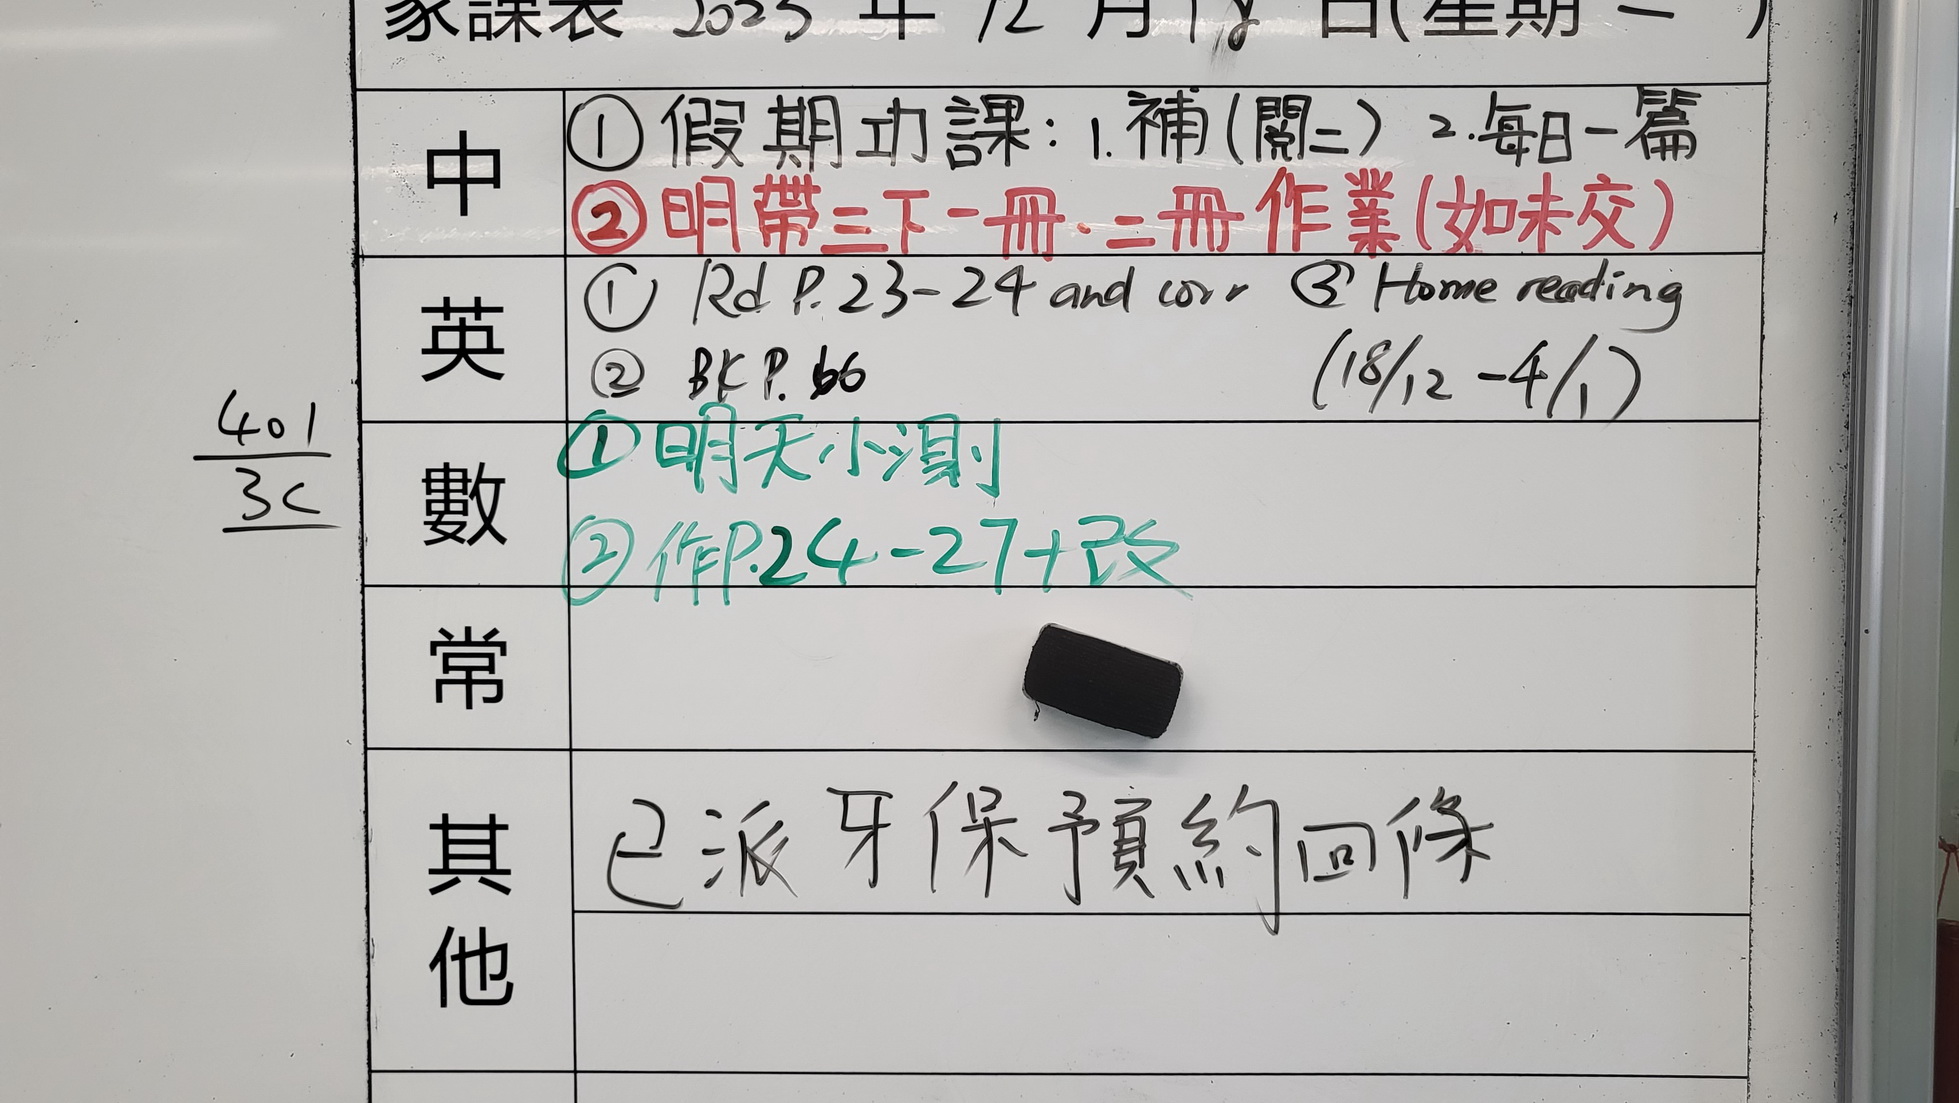 家課表 2023 年 12 月 18 日(星期 一 )
中
① 假期功課: 1. 補(閱二) 2. 每日一篇
② 明帶三下一冊.二冊作業(如未交)
英
① Rd P.23-24 and corr ③ Home reading
② BK P. 66 (18/12 - 4/1)
401
3C
數
① 明天小測
② 作P.24-27+改
常
其他
已派牙保預約回條